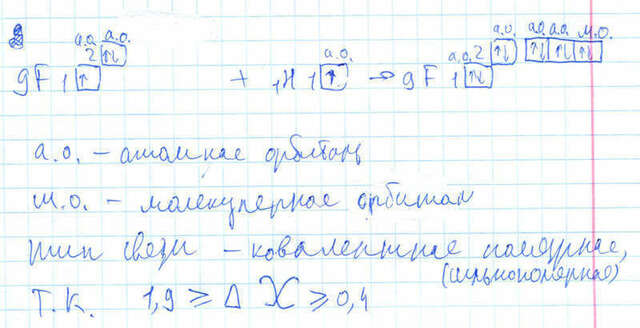 а.о. а.о.
2 ↑↓
9F 1 ↑ + 1H 1 ↑ а.о. → 9F 1 ↑↓ а.о. 2 ↑↓ а.о. ↑↓ ↑↓ ↑↓ а.о. а.о. м.о.
а.о. – атомная орбиталь
м.о. – молекулярная орбитал
тип связи – ковалентная полярная,
(сильнополярная)
Т.К. 1,9 ≥ Δ X ≥ 0,4